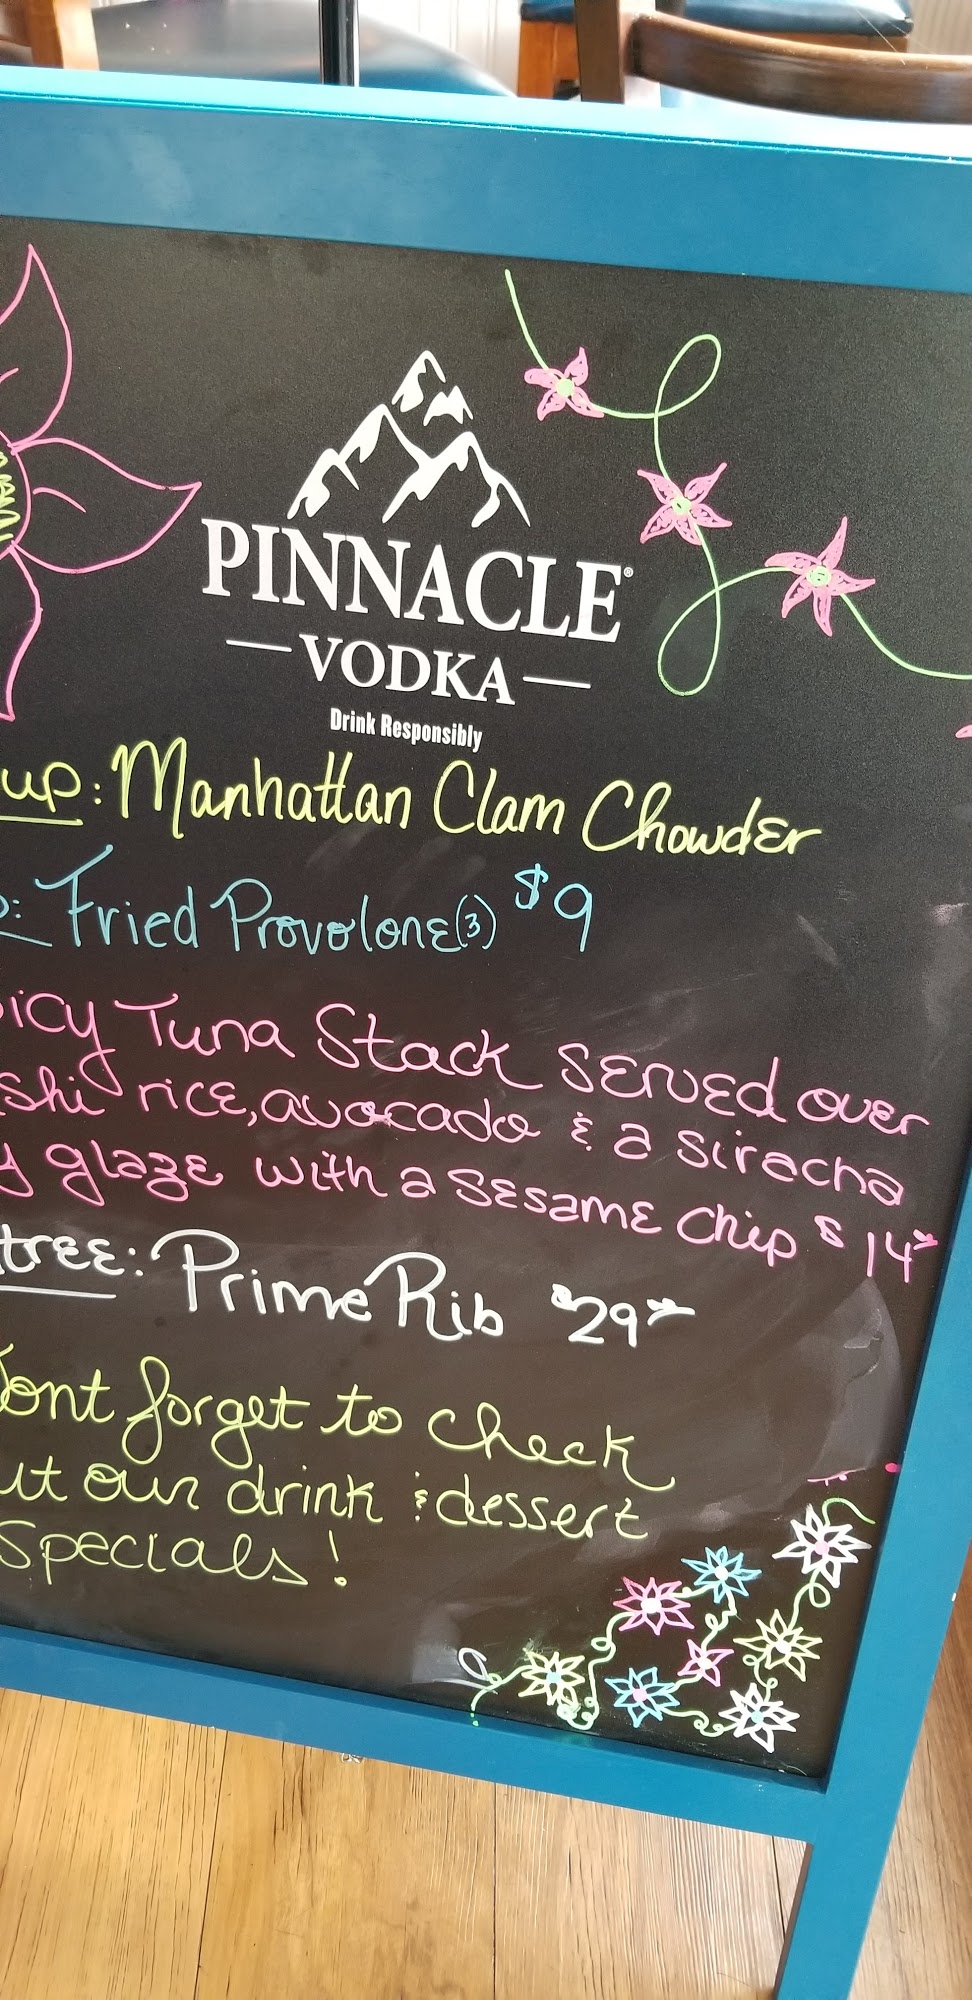 PINNACLE®
VODKA
Drink Responsibly
up: Manhattan Clam Chowder
: Fried Provolone (3) $9
icy Tuna Stack served over
shi rice, avocado & a siracha
y glaze with a sesame chip $14
tree: Prime Rib $29
Dont forget to check
ut our drink & dessert
Specials!